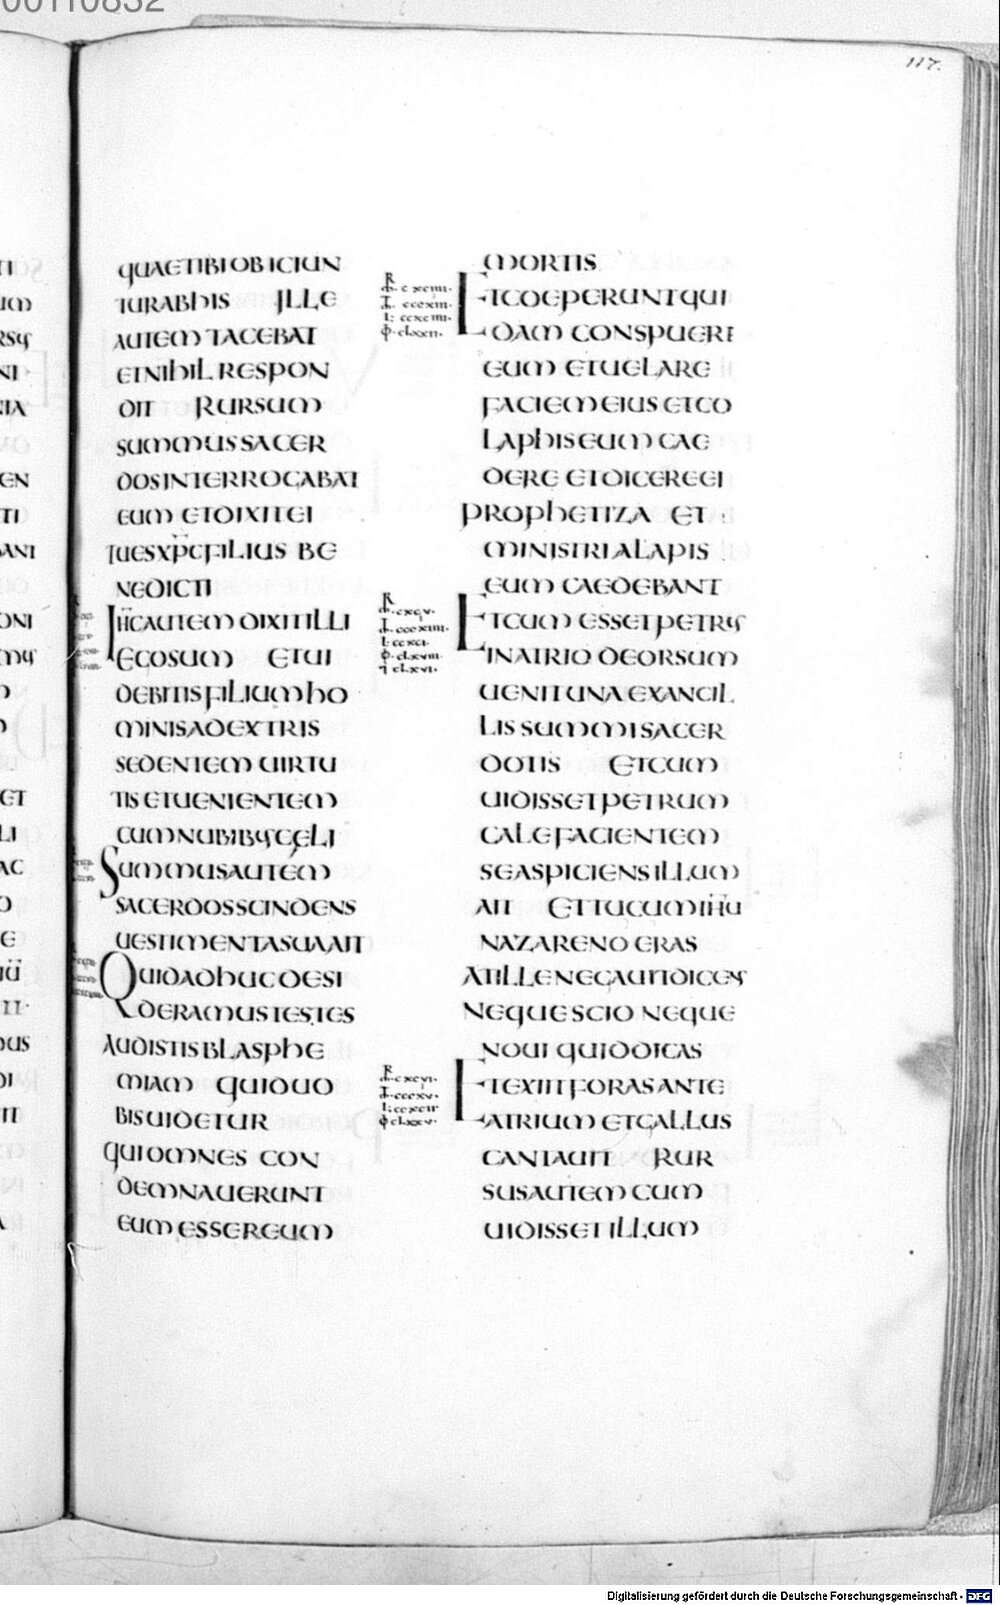 00110832
117.
QUAETIBI OBICIUN
TURABHIS ILLE
AUTEM TACEBAT
ET NIHIL RESPON
DIT RURSUM
SUMMUS SACER
DOS INTERROGABAT
EUM ET DIXIT EI
TU ES XP̅C FILIUS BE
NEDICTI
IH̅C AUTEM DIXIT ILLI
EGO SUM ET UI
DEBITIS FILIUM HO
MINIS A DEXTRIS
SEDENTEM UIRTU
TIS ET UENIENTEM
CUM NUBIBUS CĘLI
SUMMUS AUTEM
SACERDOS SCINDENS
UESTIMENTA SUA AIT
QUID ADHUC DESI
DERAMUS TESTES
AUDISTIS BLASPHE
MIAM QUID UO
BIS UIDETUR
QUI OMNES CON
DEMNAUERUNT
EUM ESSE REUM
MORTIS
ET COEPERUNT QUI
DAM CONSPUERE
EUM ET UELARE
FACIEM EIUS ET CO
LAPHIS EUM CAE
DERE ET DICERE EI
PROPHETIZA ET
MINISTRI ALAPIS
EUM CAEDEBANT
ET CUM ESSET PETRUS
IN ATRIO DEORSUM
UENIT UNA EX ANCIL
LIS SUMMI SACER
DOTIS ET CUM
UIDISSET PETRUM
CALEFACIENTEM
SE ASPICIENS ILLUM
AIT ET TU CUM IH̅U
NAZARENO ERAS
AT ILLE NEGAUIT DICENS
NEQUE SCIO NEQUE
NOUI QUID DICAS
ET EXIIT FORAS ANTE
ATRIUM ET GALLUS
CANTAUIT RUR
SUS AUTEM CUM
UIDISSET ILLUM
Digitalisierung gefördert durch die Deutsche Forschungsgemeinschaft - DFG